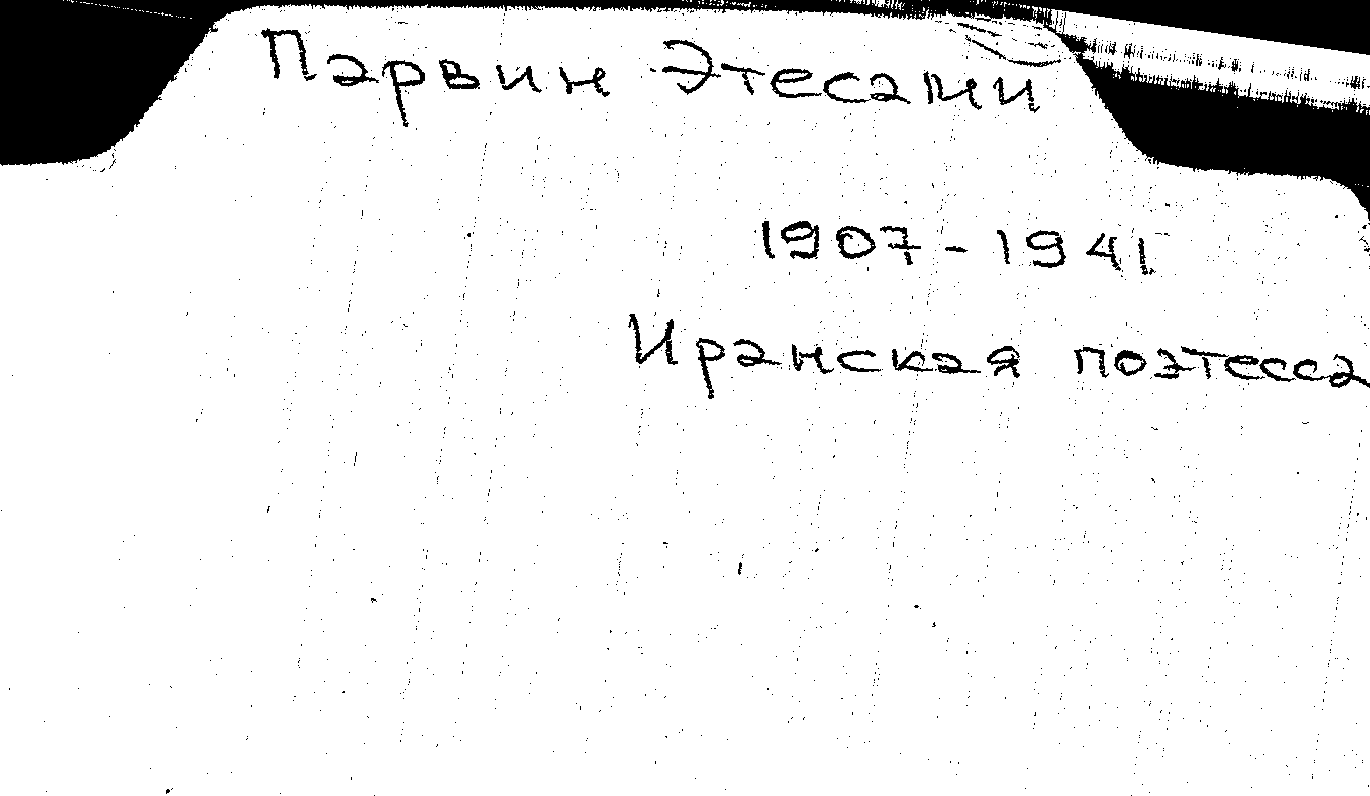 Парвин Этесами
1907 - 1941
Иранская поэтесса